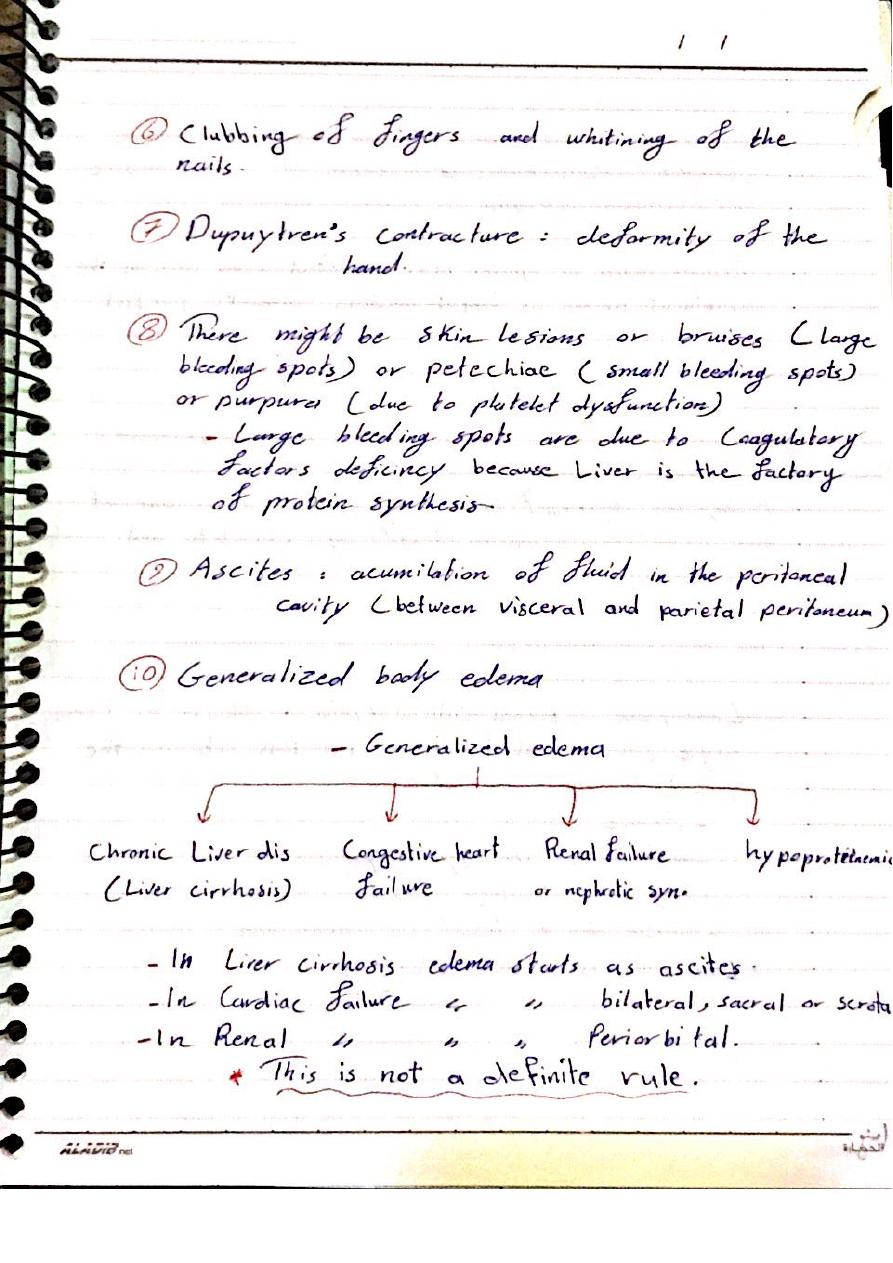 / /
⑥ Clubbing of fingers and whitining of the
nails.
⑦ Dupuytren's contracture : deformity of the
hand.
⑧ There might be skin lesions or bruises (large
bleeding spots) or petechiae (small bleeding spots)
or purpura (due to platelet dysfunction)
- Large bleeding spots are due to Coagulatory
factors deficincy because Liver is the factory
of protein synthesis
⑨ Ascites : acumilation of fluid in the peritoneal
cavity (between visceral and parietal peritoneum)
⑩ Generalized body edema
- Generalized edema
Chronic Liver dis Congestive heart Renal failure hypoproteinemic
(Liver cirrhosis) failure or nephrotic syn.
- In Liver cirrhosis edema starts as ascites.
- In Cardiac failure " " bilateral, sacral or scrota
- In Renal " " " Periorbital.
* This is not a definite rule.
ALADIB net